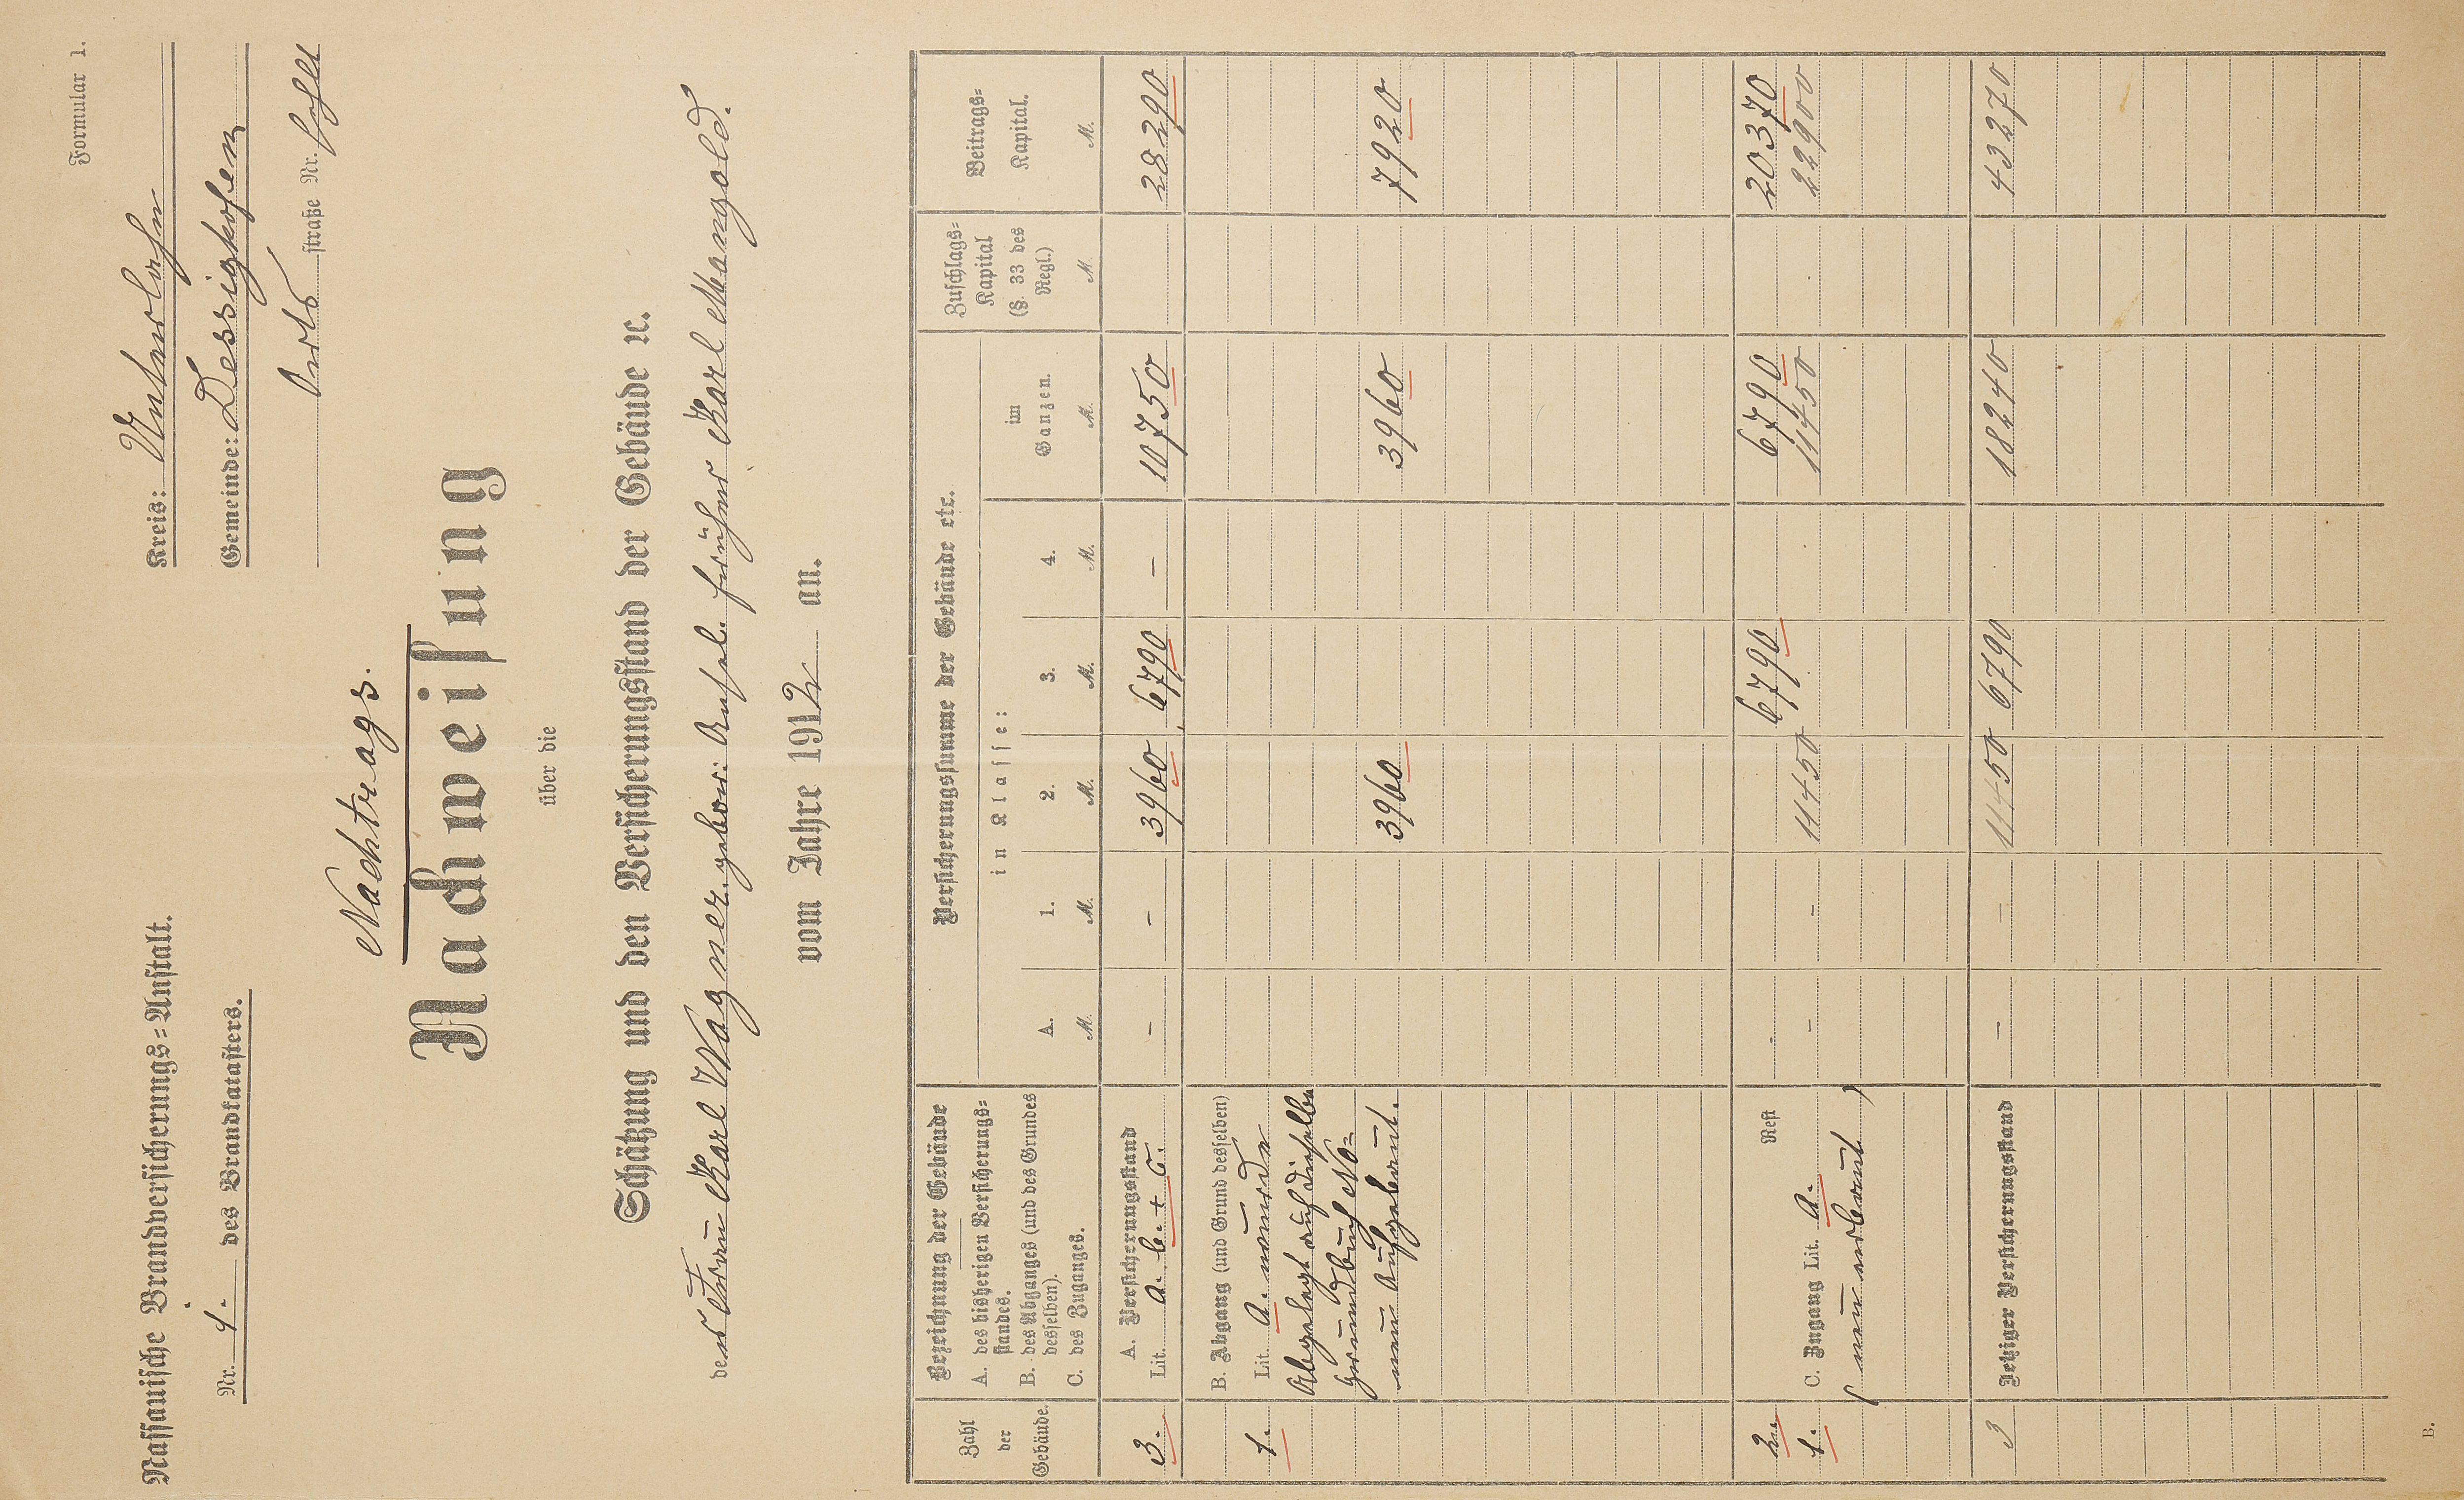 Formular 1.
Nassauische Brandversicherungs=Anstalt.
Kreis: Unterlahn
Nr. 1. des Brandkatasters.
Gemeinde: Dessighofen
Orts straße Nr.
Nachtrags.
Nachweisung
über die
Schätzung und den Versicherungsstand der Gebäude ꝛc.
der Frau Karl Wagner. gebor: früher Karl Mangold.
vom Jahre 1912 an.
Zahl
der
Gebäude.
Bezeichnung der Gebäude
A. des bisherigen Versicherungs=
standes.
B. des Abganges (und des Grundes
desselben).
C. des Zuganges.
Versicherungssumme der Gebäude etc.
in Klasse:
A. 1. 2. 3. 4.
M. M. M. M. M.
im
Ganzen.
M.
Zuschlags=
Kapital
(§. 33 des
Regl.)
M.
Beitrags=
Kapital.
M.
A. Versicherungsstand
3. Lit. a. b. + c. – – 3960 6790 – 10750 28290
B. Abgang (und Grund desselben)
1. Lit. a. wurde
Abgelegt auf dieselbe
Grundbuch No=
neu aufgebaut. 3960 3960 7920
2. Rest 6790 6790 20370
1. C. Zugang Lit. a. – – 11450 11450 22900
(neu erbaut)
3 Jetziger Versicherungsstand – – 11450 6790 18240 43270
B.